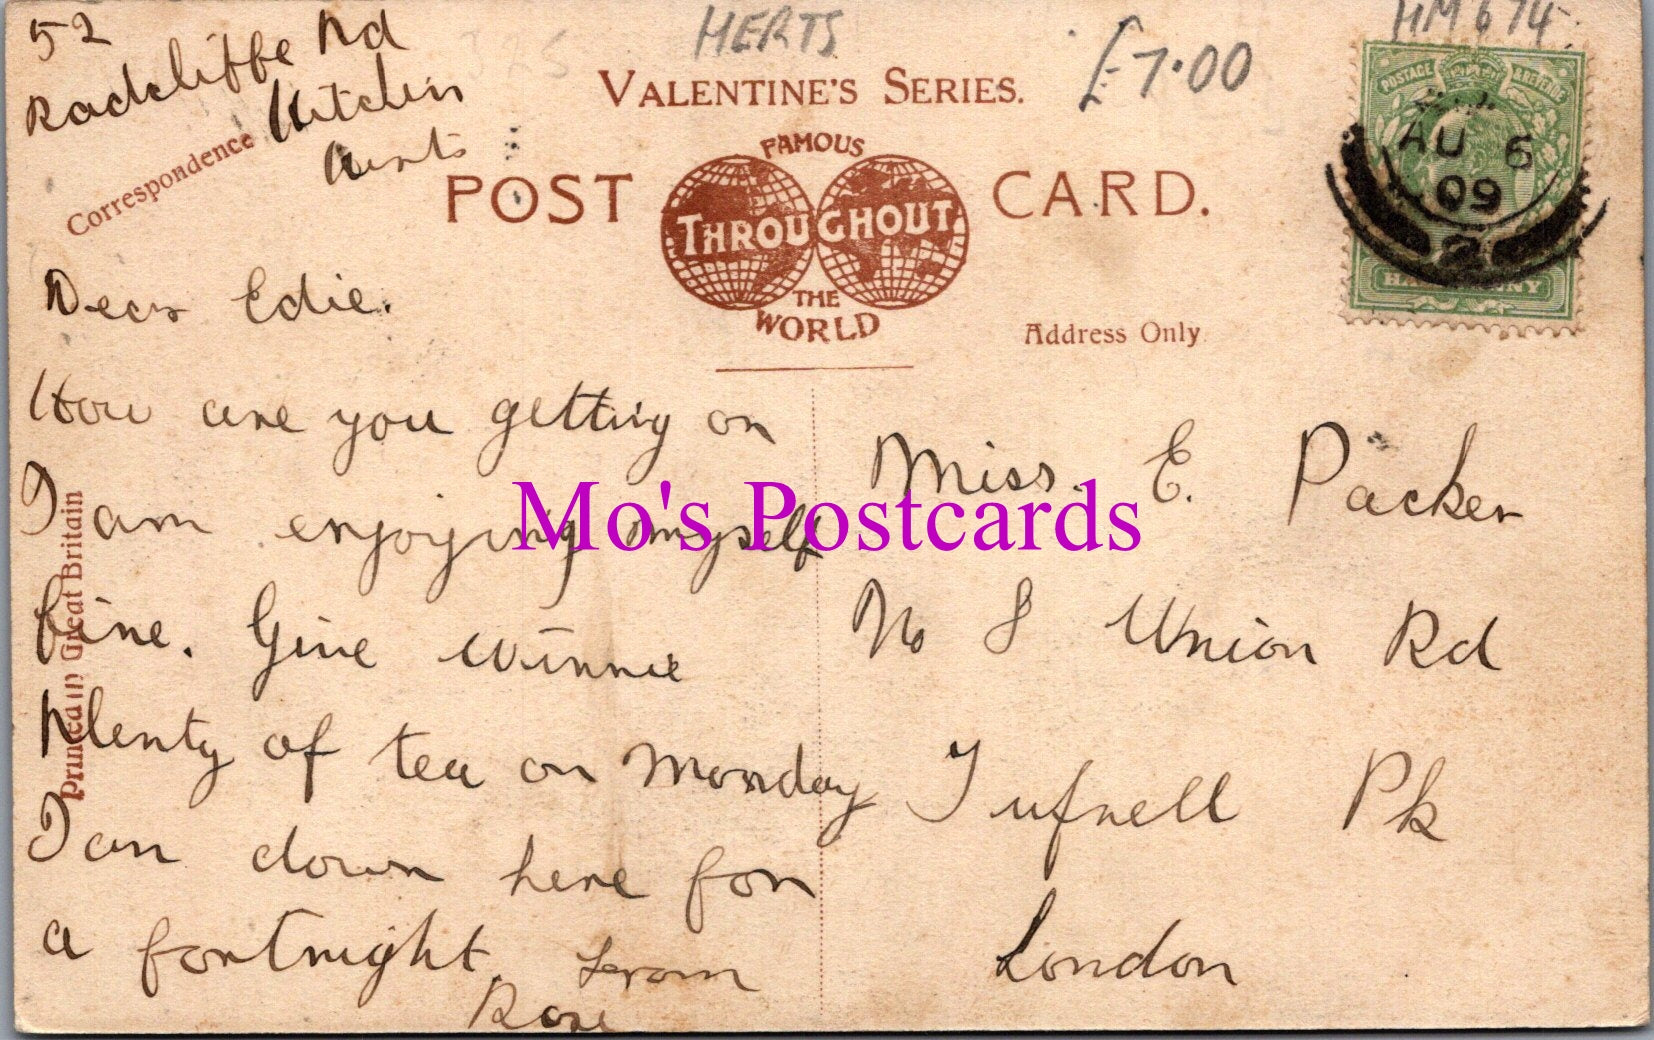 52
Radcliffe Rd
Hitchin
Herts
HERTS
£7.00
HM674
VALENTINE'S SERIES.
Correspondence
POST CARD.
FAMOUS
THROUGHOUT
THE
WORLD
Address Only
POSTAGE & REVENUE
AU 6
09
2
HALFPENNY
Printed in Great Britain
Dear Edie.
How are you getting on
I am enjoying myself
fine. Give Winnie
plenty of tea on Monday
I am down here for
a fortnight. From
Rose
Mo's Postcards
Miss. E. Packer
No 8 Union Rd
Tufnell Pk
London